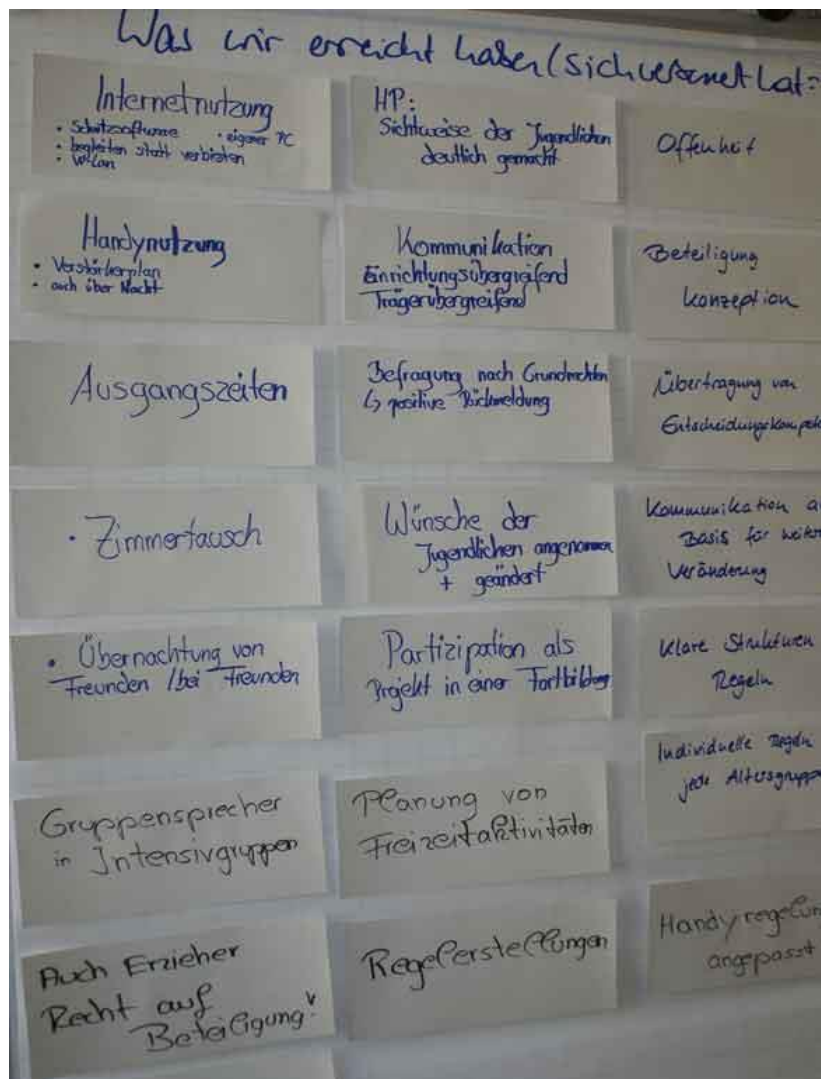 Was wir erreicht haben (sich verändert hat:
Internetnutzung
• Schutzsoftware • eigener PC
• begleiten statt verbieten
• W-Lan
Handynutzung
• Verstärkerplan
• auch über Nacht
Ausgangszeiten
• Zimmertausch
• Übernachtung von
Freunden / bei Freunden
Gruppensprecher
in Intensivgruppen
Auch Erzieher
Recht auf
Beteiligung!
HP:
Sichtweise der Jugendlichen
deutlich gemacht
Kommunikation
Einrichtungsübergreifend
Trägerübergreifend
Befragung nach Grundrechten
↳ positive Rückmeldung
Wünsche der
Jugendlichen angenommen
+ geändert
Partizipation als
Projekt in einer Fortbildung
Planung von
Freizeitaktivitäten
Regelerstellungen
Offenheit
Beteiligung
Konzeption
Übertragung von
Entscheidungskompete
Kommunikation a
Basis für weiter
Veränderung
Klare Strukturen
Regeln
Individuelle Regeln
jede Altersgruppe
Handyregelun
angepasst